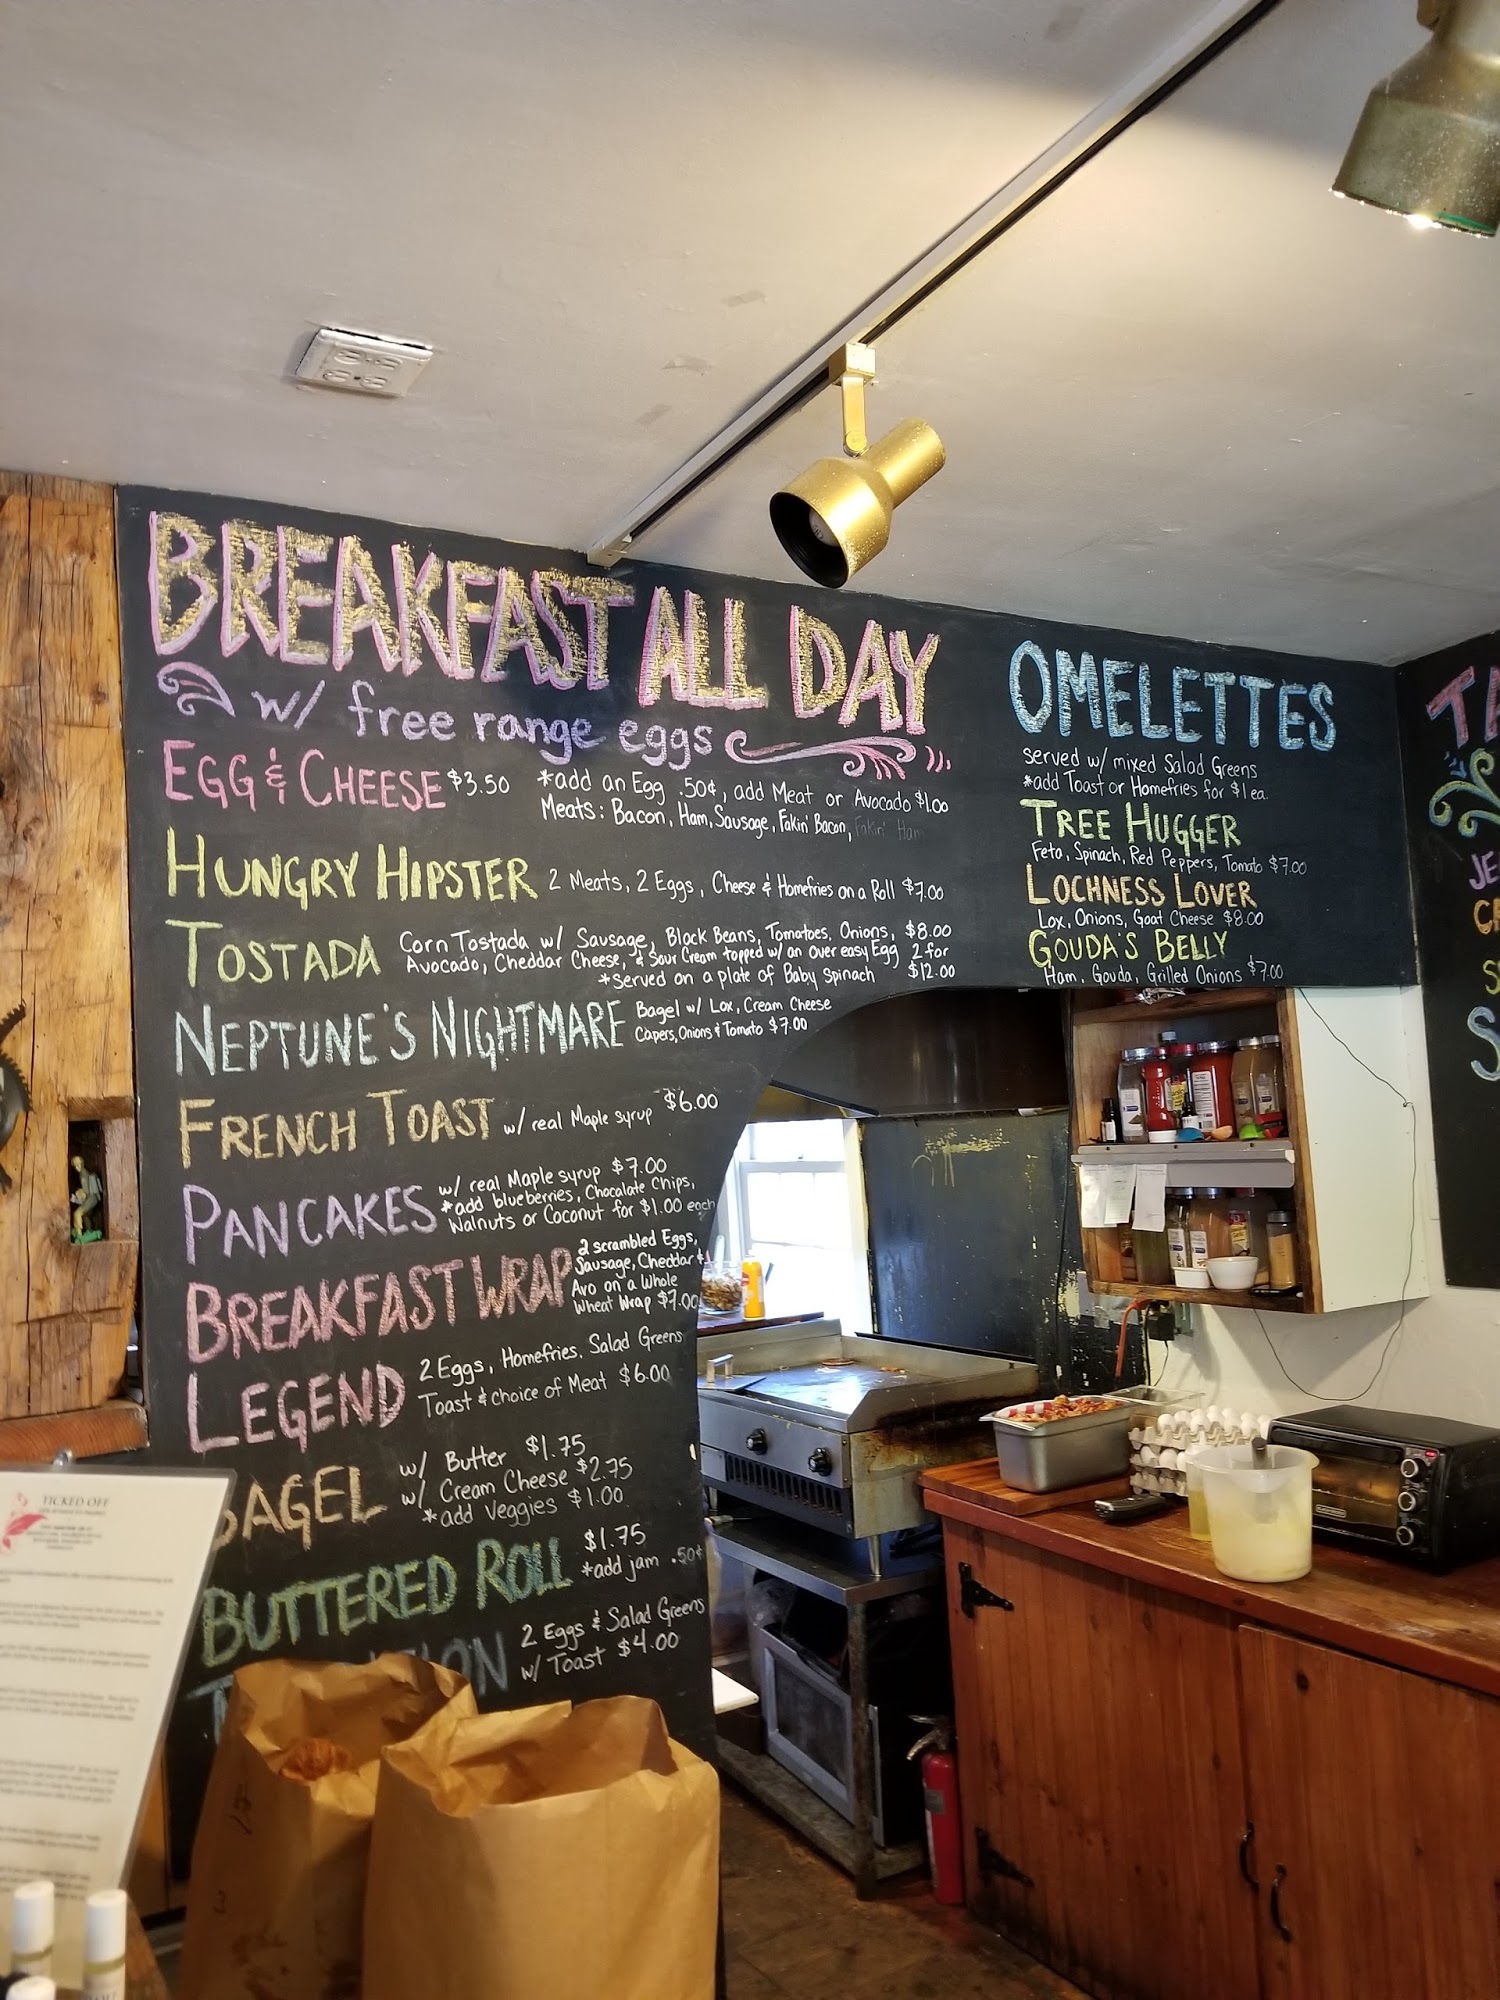 BREAKFAST ALL DAY
w/ free range eggs
EGG & CHEESE $3.50
*add an Egg .50¢, add Meat or Avocado $1.00
Meats: Bacon, Ham, Sausage, Fakin' Bacon, Fakin' Ham
HUNGRY HIPSTER 2 Meats, 2 Eggs, Cheese & Homefries on a Roll $7.00
TOSTADA
Corn Tostada w/ Sausage, Black Beans, Tomatoes, Onions, $8.00
Avocado, Cheddar Cheese, & Sour Cream topped w/ an over easy Egg 2 for
*Served on a plate of Baby Spinach $12.00
NEPTUNE'S NIGHTMARE
Bagel w/ Lox, Cream Cheese
Capers, Onions & Tomato $7.00
FRENCH TOAST w/ real Maple syrup $6.00
PANCAKES
w/ real Maple syrup $7.00
*add blueberries, Chocalate Chips,
Walnuts or Coconut for $1.00 each
BREAKFAST WRAP
2 scrambled Eggs,
Sausage, Cheddar &
Avo on a Whole
Wheat Wrap $7.00
LEGEND
2 Eggs, Homefries, Salad Greens
Toast & choice of Meat $6.00
BAGEL
w/ Butter $1.75
w/ Cream Cheese $2.75
*add Veggies $1.00
BUTTERED ROLL
$1.75
*add jam .50¢
2 Eggs & Salad Greens
w/ Toast $4.00
OMELETTES
served w/ mixed Salad Greens
*add Toast or Homefries for $1 ea.
TREE HUGGER
Feta, Spinach, Red Peppers, Tomato $7.00
LOCHNESS LOVER
Lox, Onions, Goat Cheese $8.00
GOUDA'S BELLY
Ham, Gouda, Grilled Onions $7.00
TICKED OFF